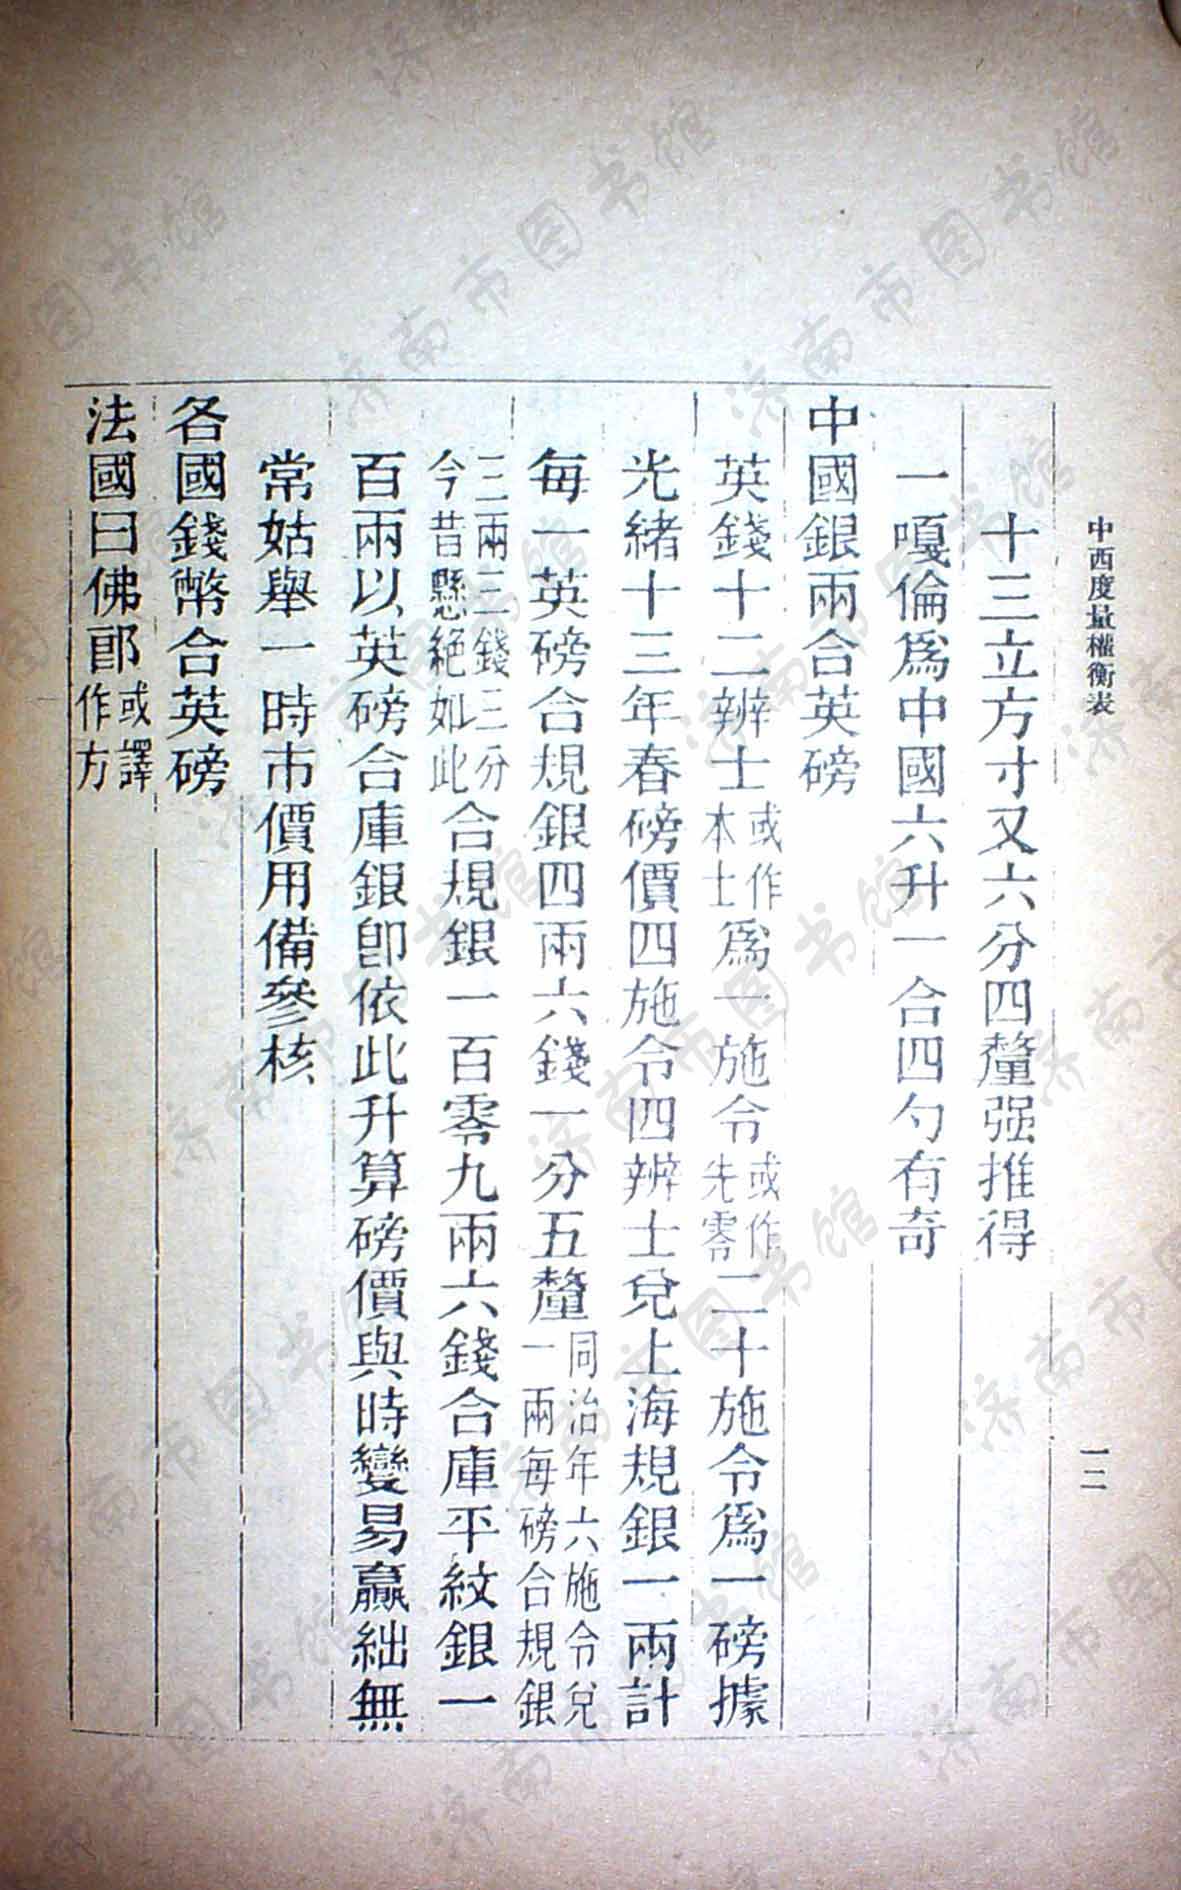 中西度量權衡表
一二
十三立方寸又六分四釐强推得
一嘎倫爲中國六升一合四勺有奇
中國銀兩合英磅
英錢十二辨士或作本士爲一施令或作先零二十施令爲一磅據
光緒十三年春磅價四施令四辨士兌上海規銀一兩計
每一英磅合規銀四兩六錢一分五釐同治年六施令兌一兩每磅合規銀
三兩三錢三分今昔懸絕如此合規銀一百零九兩六錢合庫平紋銀一
百兩以英磅合庫銀卽依此升算磅價與時變易贏絀無
常姑舉一時市價用備參核
各國錢幣合英磅
法國曰佛郎或譯作方
济南市图书馆